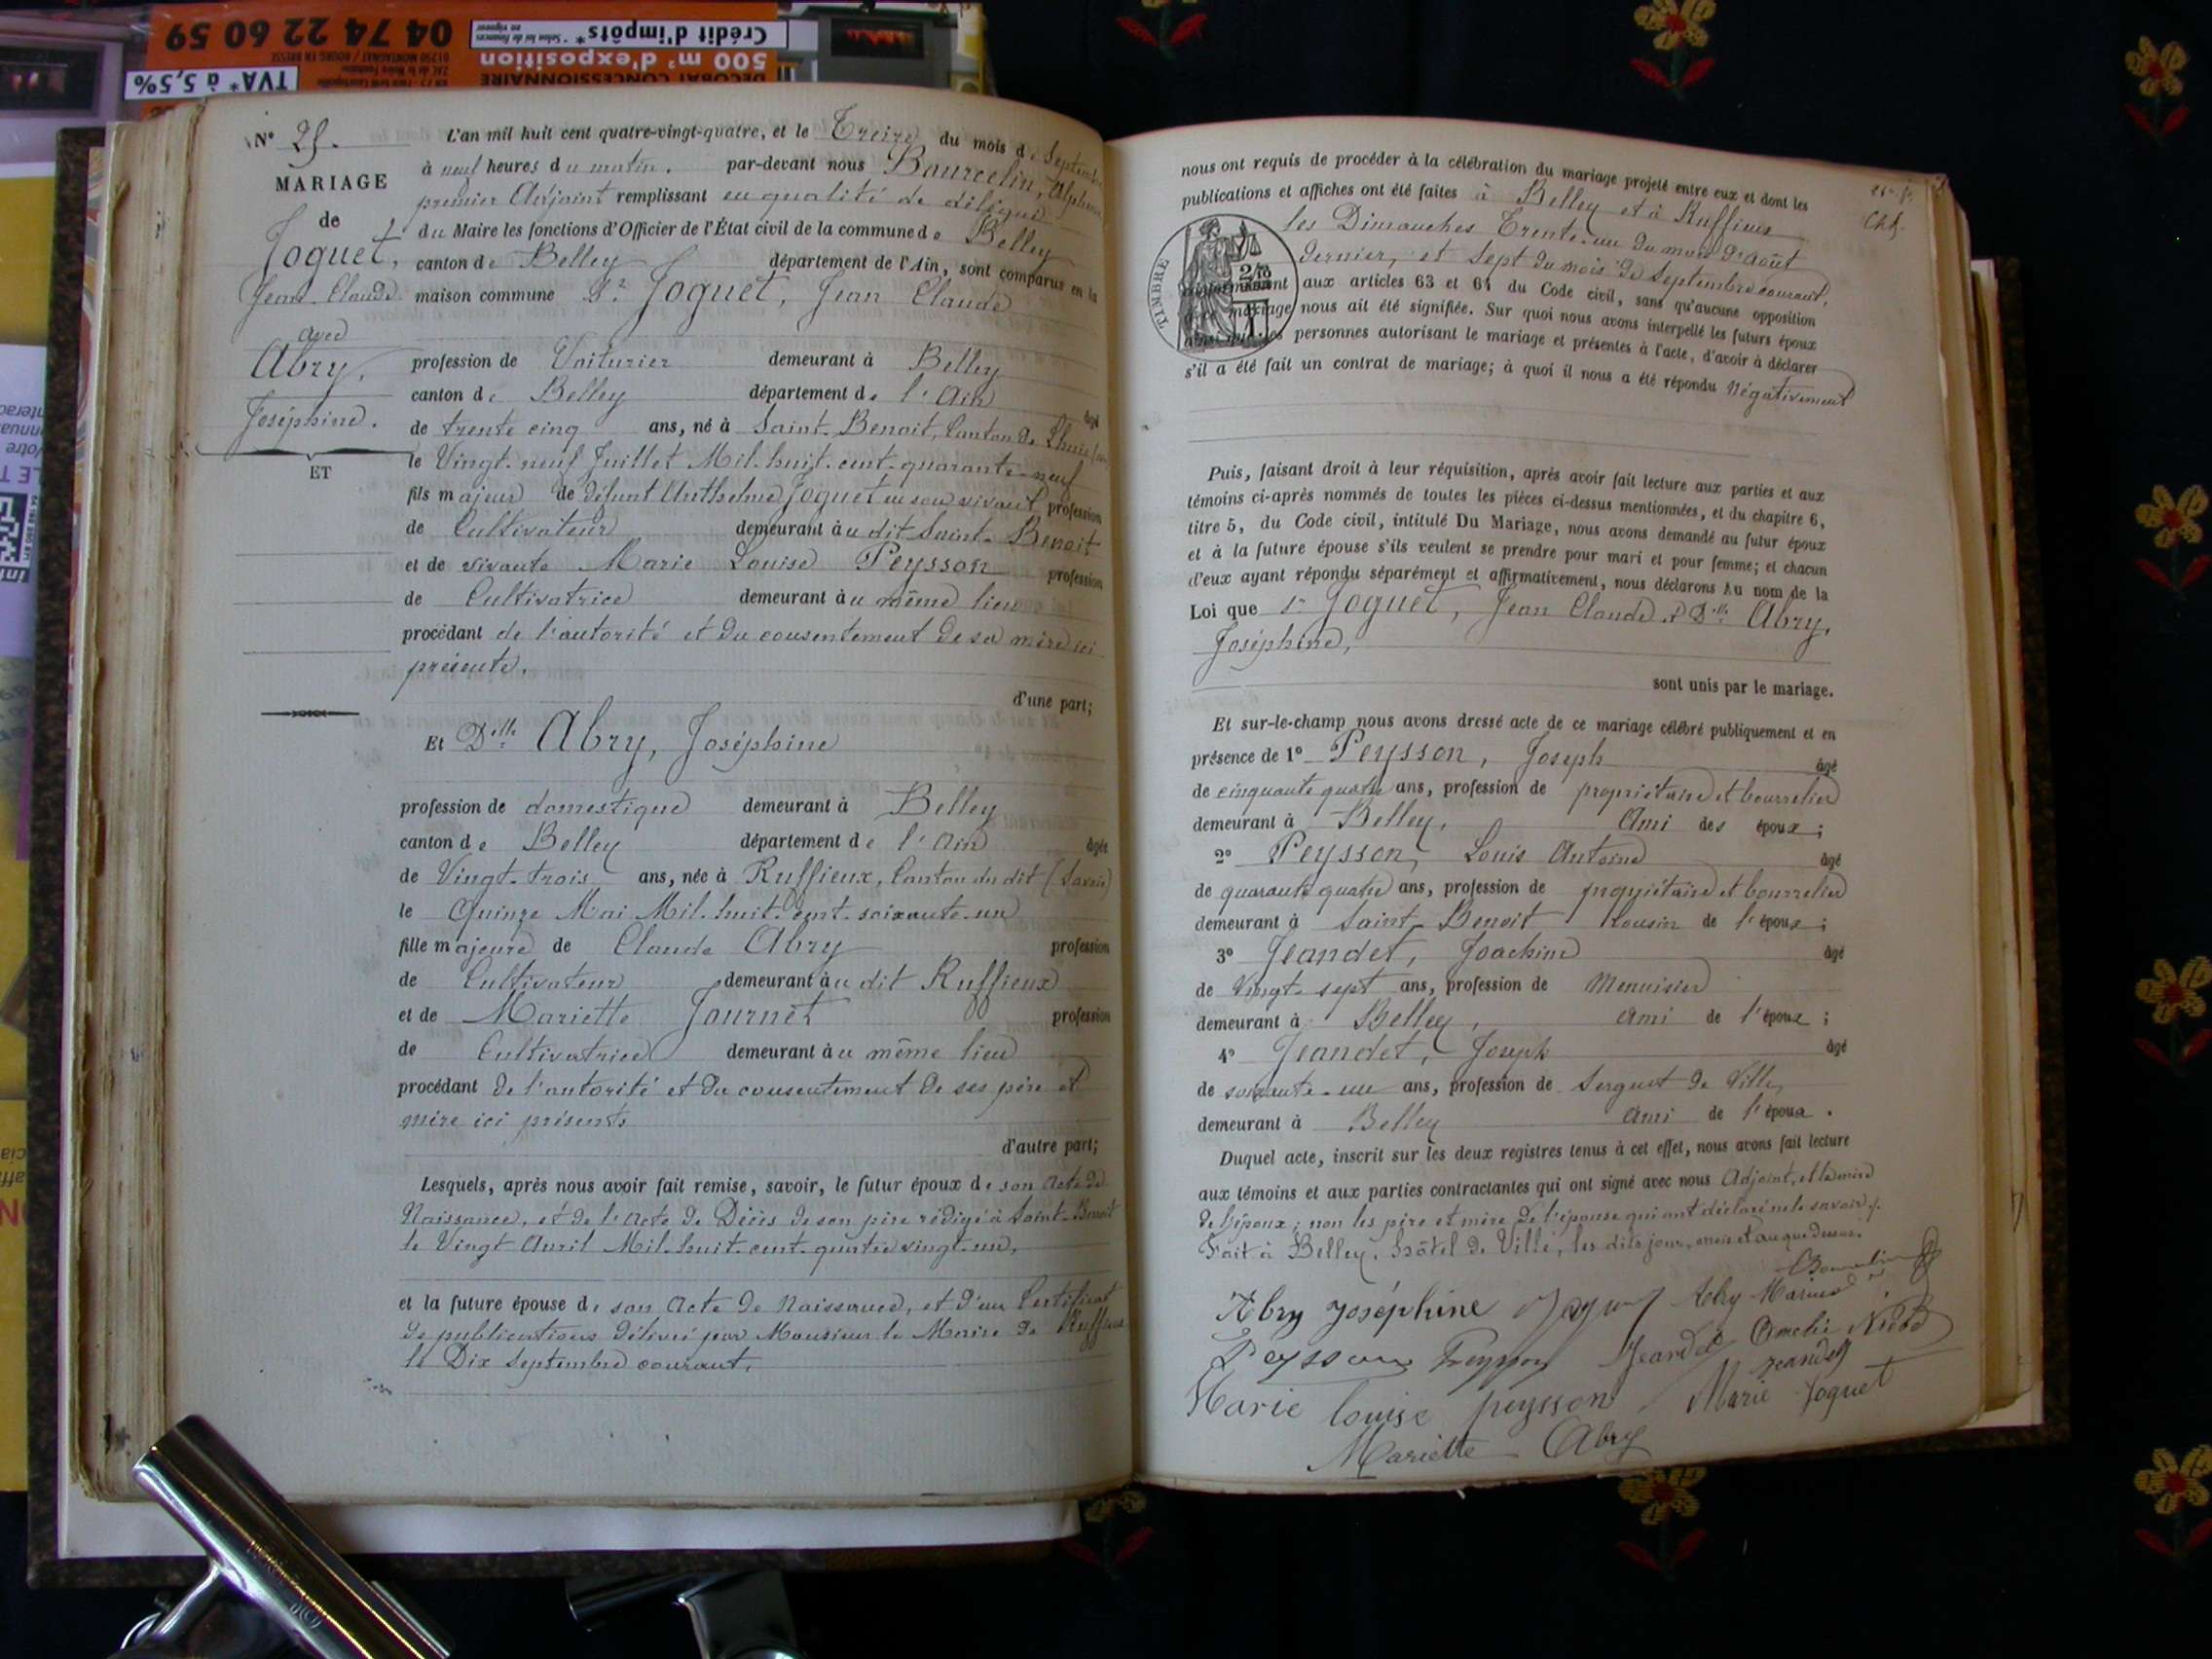 04 74 22 60 59
Crédit d'impôts*
*Selon loi de finances
en vigueur
01250 MONTAGNAT / BOURG EN BRESSE
TVA* à 5,5%
500 m² d'exposition
DECOBAT CONCESSIONNAIRE
N° 25.
MARIAGE
de
Joguet,
Jean Claude
avec
Abry,
Joséphine.
ET
L'an mil huit cent quatre-vingt-quatre, et le Treize du mois de Septembre
à neuf heures du matin. par-devant nous Bourcelin, Alphonse
premier Adjoint remplissant en qualité de délégué
du Maire les fonctions d'Officier de l'État civil de la commune de Belley
canton de Belley département de l'Ain, sont comparus en la
maison commune Sr Joguet, Jean Claude
profession de Voiturier demeurant à Belley
canton de Belley département de l'Ain âgé
de trente cinq ans, né à Saint-Benoit, Canton de Lhuis
le Vingt-neuf Juillet Mil-huit-cent-quarante-neuf
fils majeur de défunt Anthelme Joguet en son vivant profession
de Cultivateur demeurant au dit Saint-Benoit
et de vivante Marie Louise Peysson profession
de Cultivatrice demeurant au même lieu
procédant de l'autorité et du consentement de sa mère ici
présente.
d'une part;
Et Dlle Abry, Joséphine
profession de domestique demeurant à Belley
canton de Belley département de l'Ain âgée
de Vingt-trois ans, née à Ruffieux, Canton du dit (Savoie)
le Quinze Mai Mil-huit-cent-soixante-un
fille majeure de Claude Abry profession
de Cultivateur demeurant au dit Ruffieux
et de Mariette Journet profession
de Cultivatrice demeurant au même lieu
procédant de l'autorité et du consentement de ses père et
mère ici présents
d'autre part;
Lesquels, après nous avoir fait remise, savoir, le futur époux de son acte de
Naissance, et de l'acte de Décès de son père rédigé à Saint-Benoit
le Vingt Avril Mil-huit-cent-quatre vingt-un,
et la future épouse de son acte de Naissance, et d'un Certificat
de publications délivré par Monsieur le Maire de Ruffieux
le Dix Septembre courant.
nous ont requis de procéder à la célébration du mariage projeté entre eux et dont les
publications et affiches ont été faites à Belley et à Ruffieux
les Dimanches Trente-un du mois d'Août
dernier, et Sept du mois de Septembre courant,
TIMBRE
conformément aux articles 63 et 64 du Code civil, sans qu'aucune opposition
mariage nous ait été signifiée. Sur quoi nous avons interpellé les futurs époux
personnes autorisant le mariage et présentes à l'acte, d'avoir à déclarer
s'il a été fait un contrat de mariage; à quoi il nous a été répondu Négativement
Puis, faisant droit à leur réquisition, après avoir fait lecture aux parties et aux
témoins ci-après nommés de toutes les pièces ci-dessus mentionnées, et du chapitre 6,
titre 5, du Code civil, intitulé Du Mariage, nous avons demandé au futur époux
et à la future épouse s'ils veulent se prendre pour mari et pour femme; et chacun
d'eux ayant répondu séparément et affirmativement, nous déclarons au nom de la
Loi que Sr Joguet, Jean Claude et Dlle Abry,
Joséphine,
sont unis par le mariage.
Et sur-le-champ nous avons dressé acte de ce mariage célébré publiquement et en
présence de 1° Peysson, Joseph âgé
de cinquante quatre ans, profession de propriétaire et bourrelier
demeurant à Belley, Ami des époux;
2° Peysson, Louis Antoine âgé
de quarante quatre ans, profession de propriétaire et bourrelier
demeurant à Saint-Benoit Cousin de l'époux;
3° Jeandet, Joachim âgé
de Vingt-sept ans, profession de Menuisier
demeurant à Belley, ami de l'époux;
4° Jeandet, Joseph âgé
de soixante-un ans, profession de Sergent de Ville,
demeurant à Belley ami de l'époux.
Duquel acte, inscrit sur les deux registres tenus à cet effet, nous avons fait lecture
aux témoins et aux parties contractantes qui ont signé avec nous Adjoint, et la mère
de l'époux; non les père et mère de l'épouse qui ont déclaré ne le savoir.
Fait à Belley, Hôtel de Ville, les dits jour, mois et an que dessus.
Abry Joséphine Joguet Abry Marius
Peysson Peysson Jeandet Amélie
Jeandet
Marie louise peysson Marie Joguet
Mariette Abry